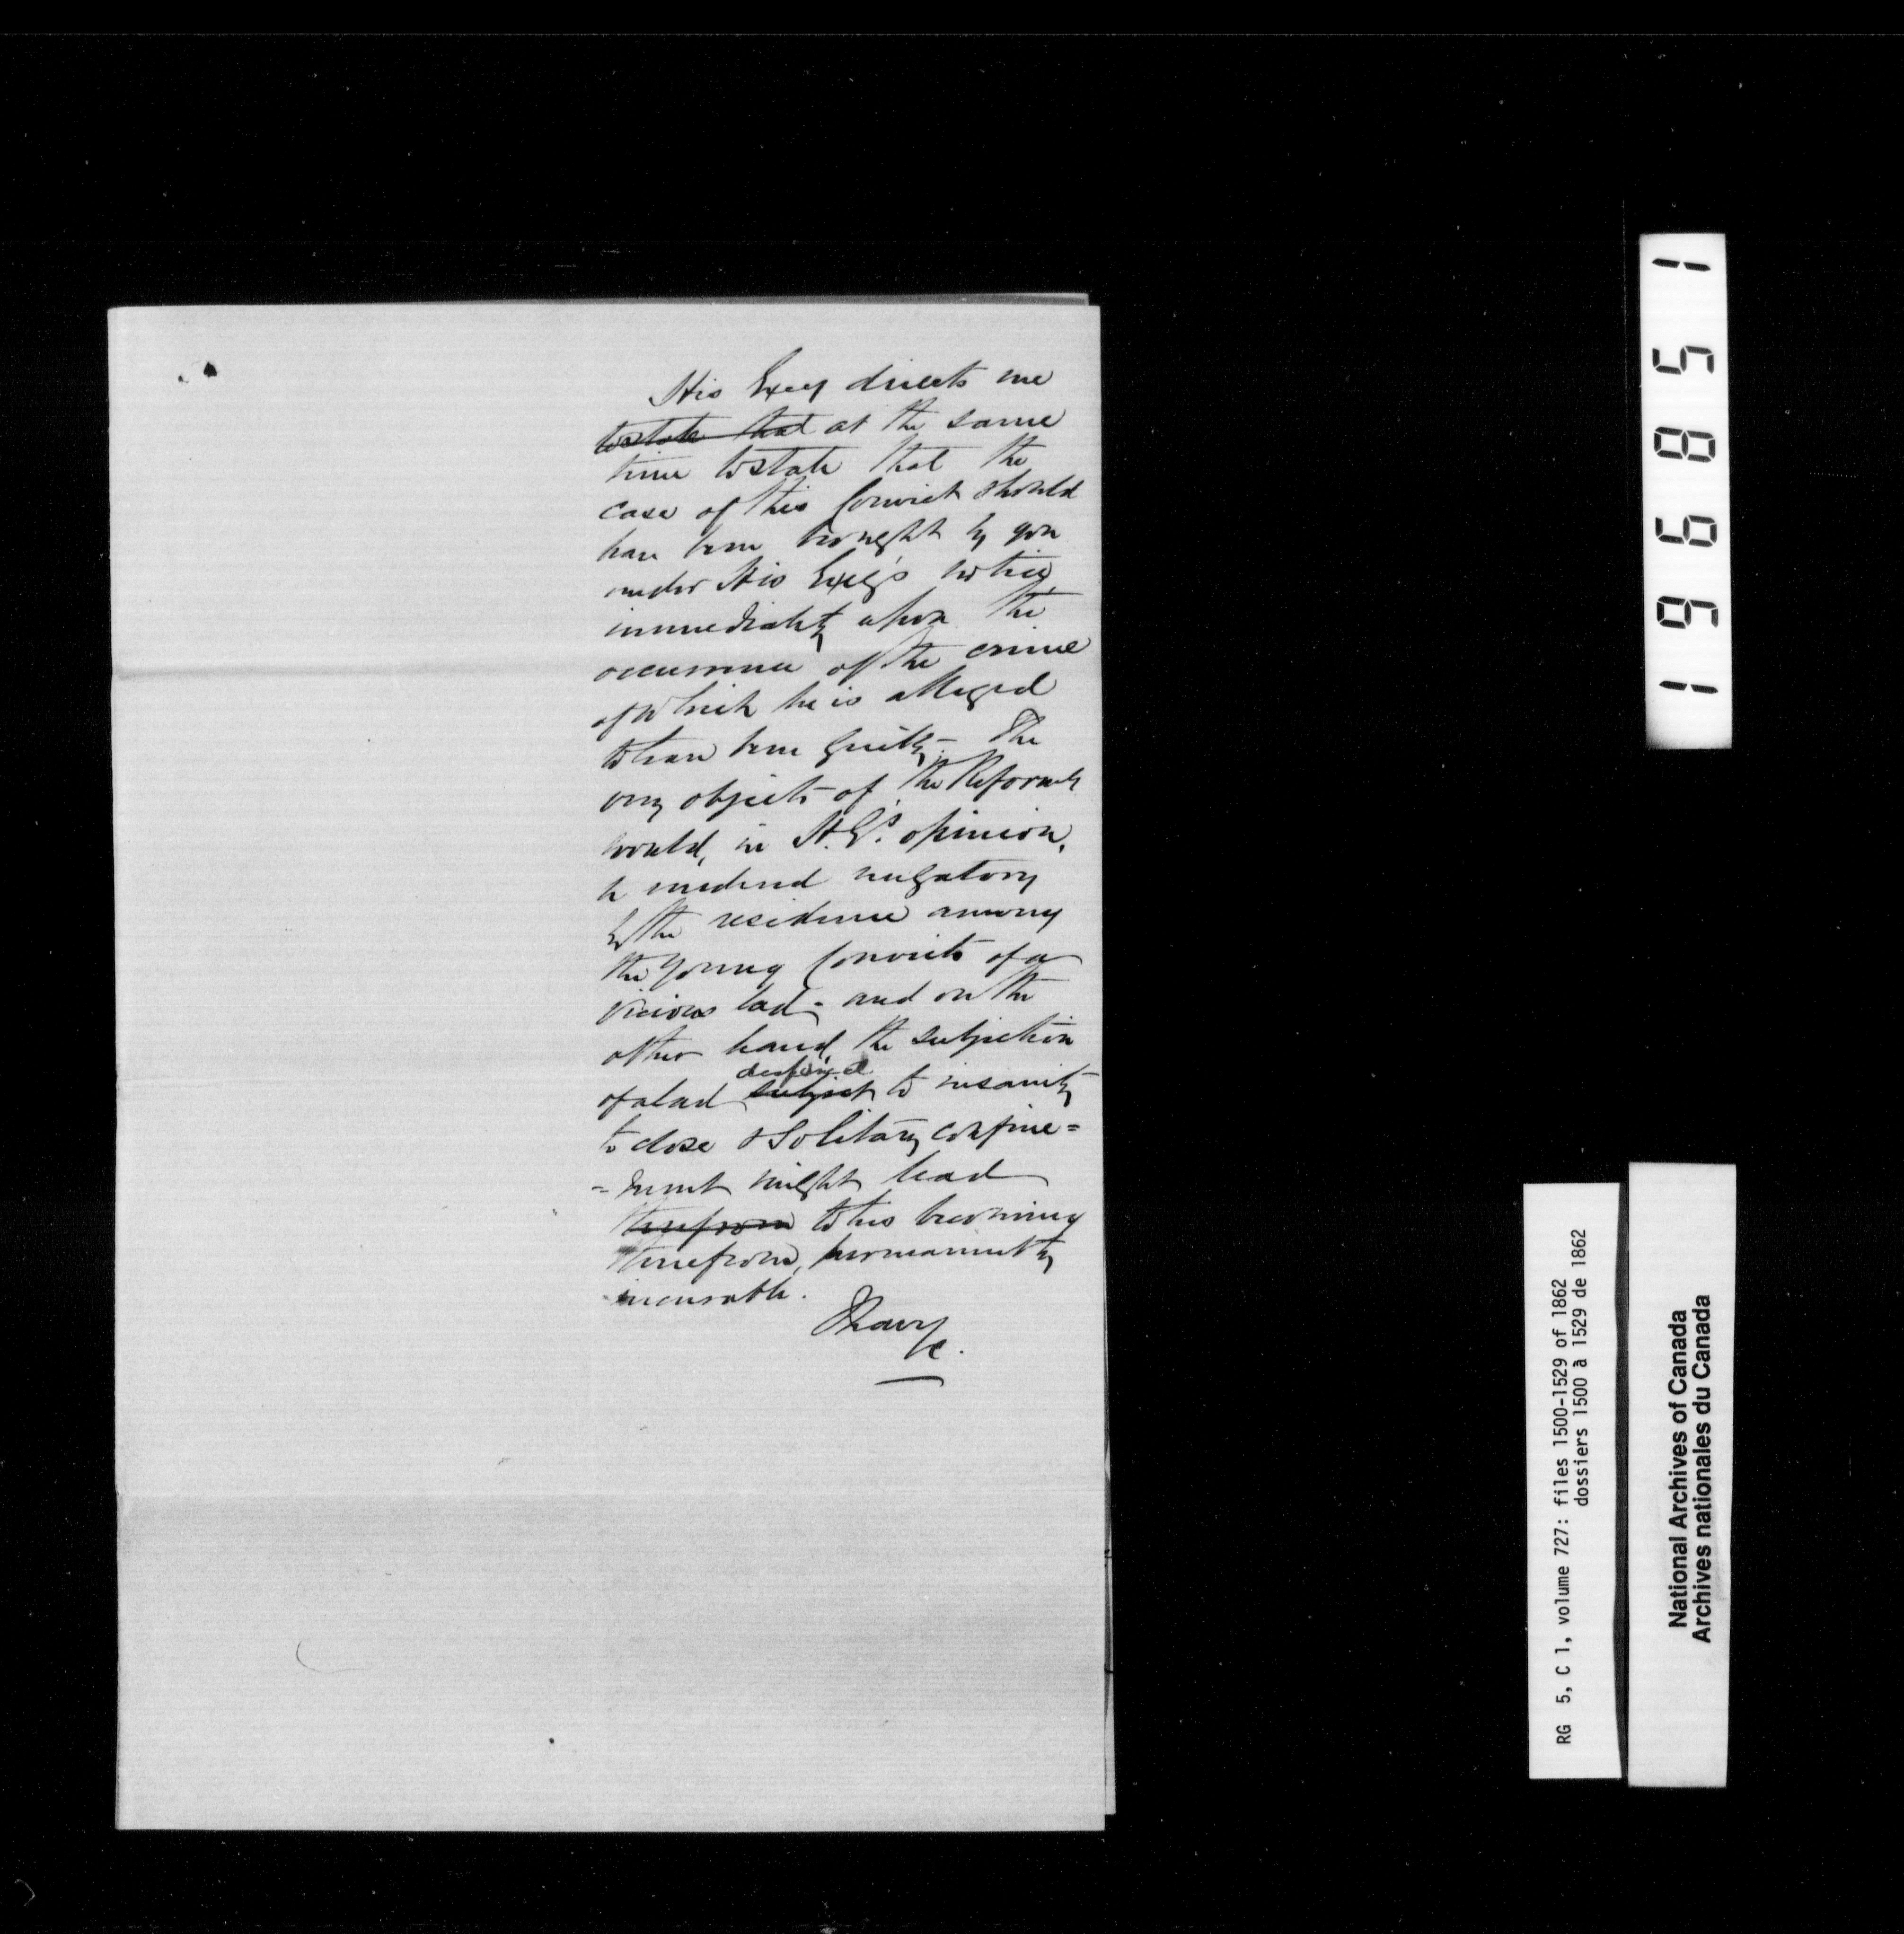 His Excy directs me
to state that at the same
time to state that the
case of this Convict should
have been brought by you
under His Excy's notice,
immediately upon the
occurrence of the crime
of which he is alleged
to have been guilty - The
very objects of the Reformy
would, in H.E's. opinion,
be rendered nugatory
by the residence among
the young Convicts of a
vicious lad - and on the
other hand, the subjection
of a lad subject to insanity
to close & Solitary confine=
=ment might lead
therefrom to his becoming
therefrom, permanently
incurable.
I have
&c.
196851
RG 5, C 1, volume 727: files 1500-1529 of 1862
dossiers 1500 à 1529 de 1862
National Archives of Canada
Archives nationales du Canada